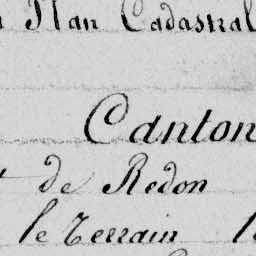 Plan Cadastral
Canton
de Redon
le Terrain